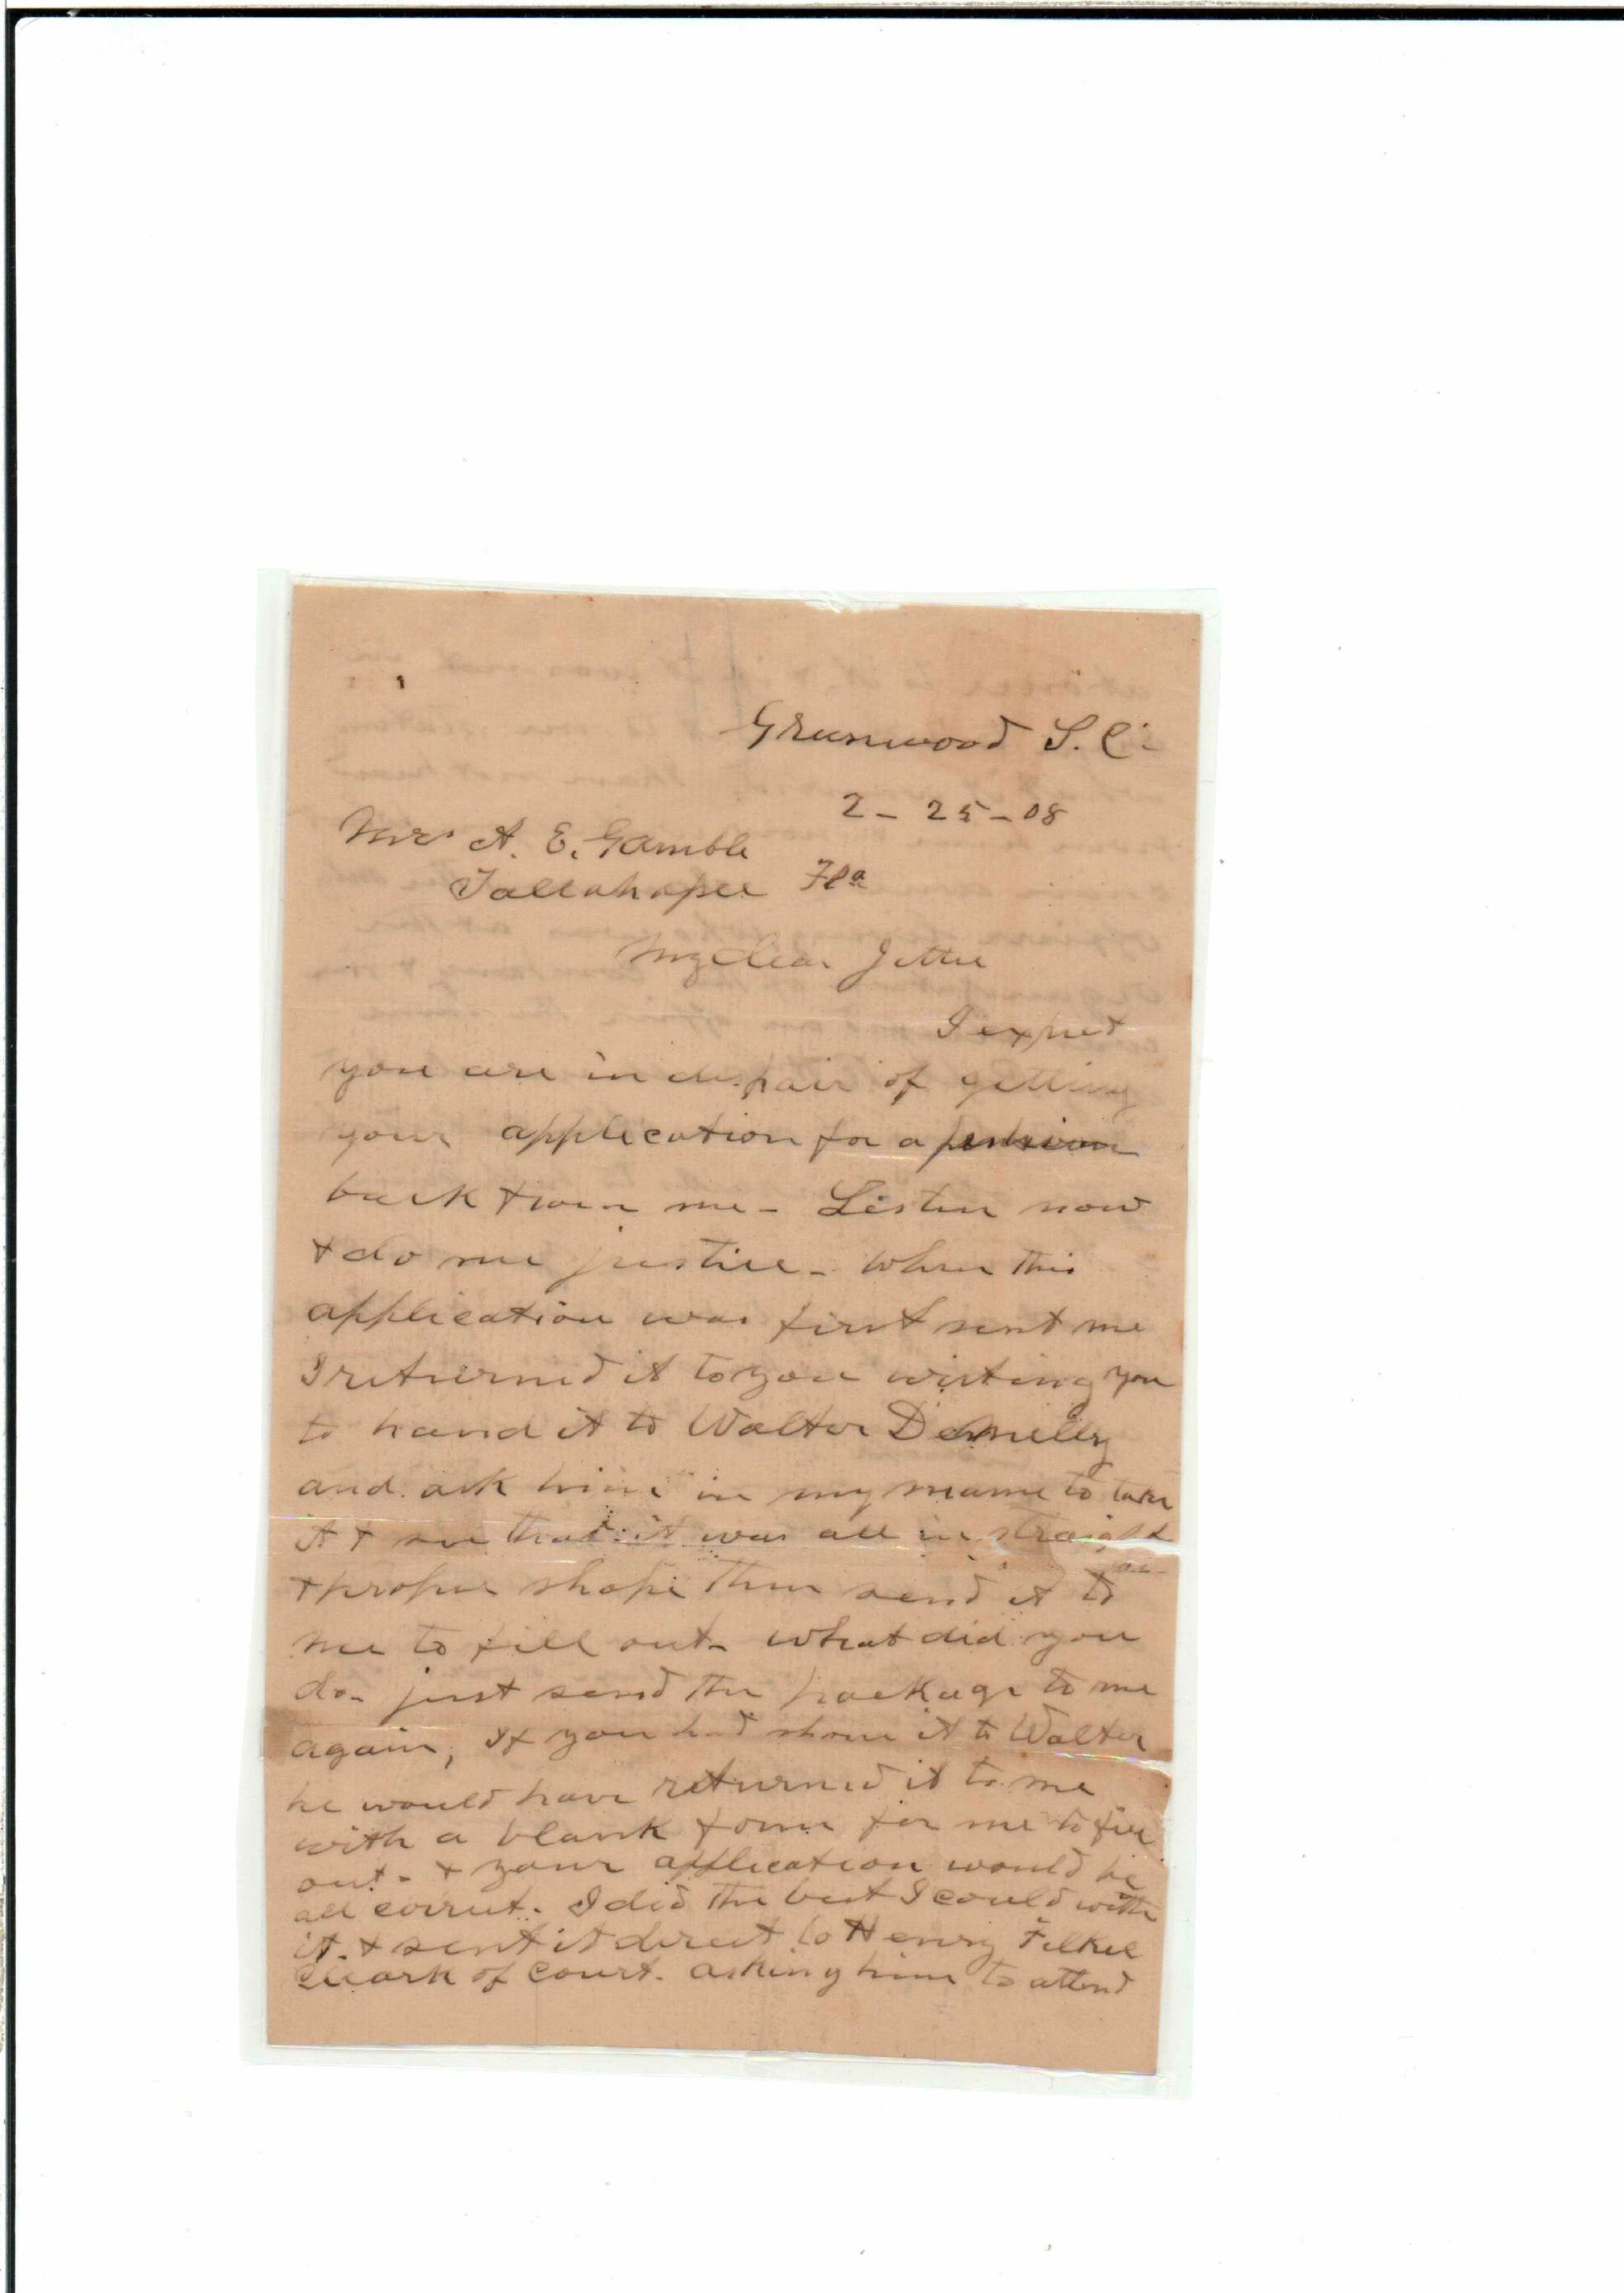 Greenwood S. C.
2 - 25 - 08
Mrs A. E. Gamble
Tallahassee Fla
My dear Jettie
I expect
you are in despair of getting
your application for a pension
back from me - Listen now
+ do me justice - When this
application was first sent me
I returned it to you writing you
to hand it to Walter Demilly
and ask him in my name to take
it + see that it was all in straight
+ proper shape then send it to
me to fill out - What did you
do - just send the package to me
again, If you had shown it to Walter
he would have returned it to me
with a blank form for me to fill
out - + your application would be
all correct. I did the best I could with
it. + sent it direct to Henry Felkel
Cleark of Court. asking him to attend